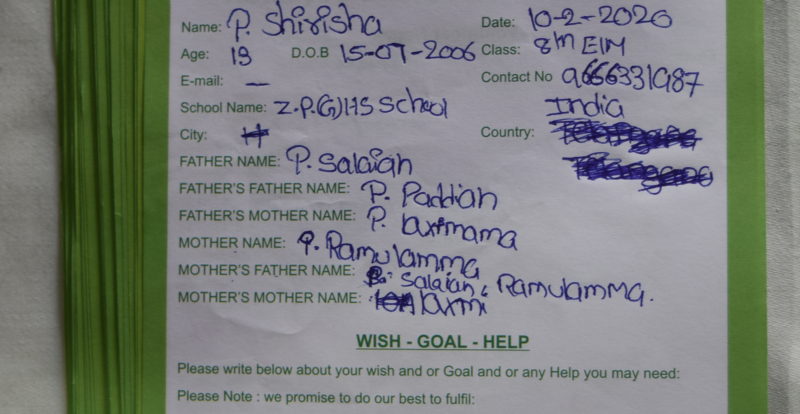 Name: P. Shirisha Date: 10-2-2020
Age: 13 D.O.B 15-07-2006 Class: 8th E/M
E-mail: — Contact No 9666331987
School Name: Z.P.(G)HS School India
City: Country:
FATHER NAME: P. Salaiah
FATHER'S FATHER NAME: P. Paddiah
FATHER'S MOTHER NAME: P. laxmama
MOTHER NAME: P. Ramulamma
MOTHER'S FATHER NAME: Salaiah, Ramulamma.
MOTHER'S MOTHER NAME: laxmi
WISH - GOAL - HELP
Please write below about your wish and or Goal and or any Help you may need:
Please Note : we promise to do our best to fulfil: